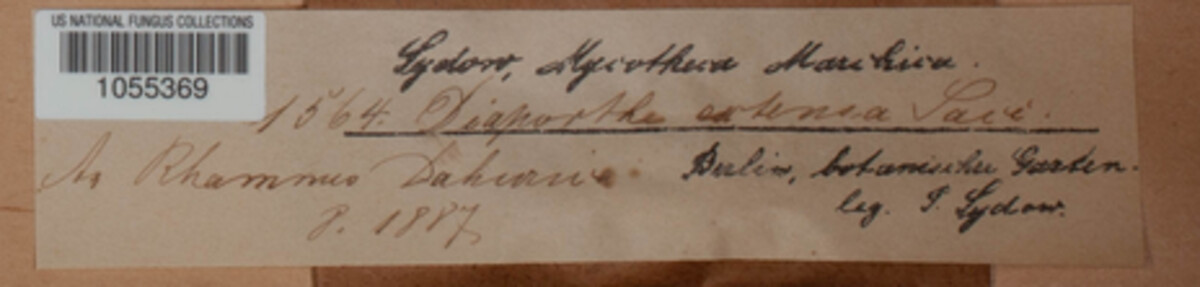 US NATIONAL FUNGUS COLLECTIONS
1055369
Sydow, Mycotheca Marchica.
1564. Diaporthe extensa Sacc.
An Rhamnus Dahurica
Berlin, botanischer Garten.
8. 1887
leg. P. Sydow.